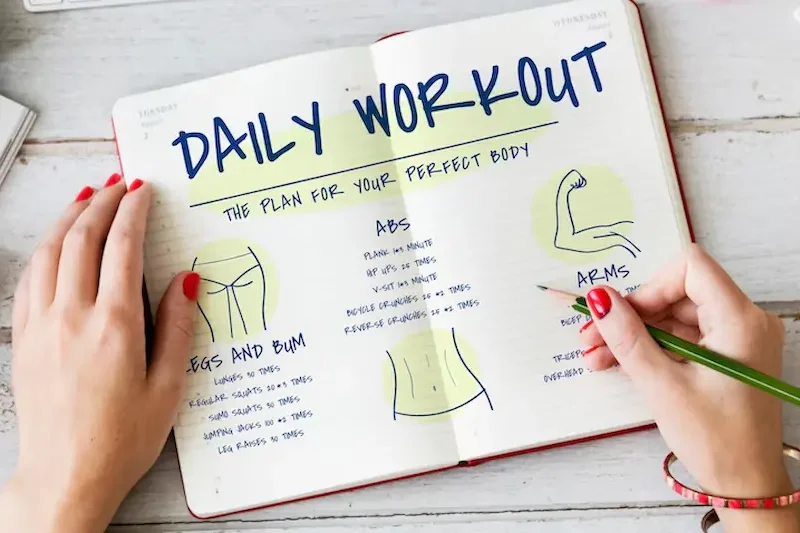 TUESDAY
2
WEDNESDAY
DAILY WORKOUT
THE PLAN FOR YOUR PERFECT BODY
LEGS AND BUM
LUNGES 30 TIMES
REGULAR SQUATS 20 *3 TIMES
SUMO SQUATS 30 TIMES
JUMPING JACKS 100 *2 TIMES
LEG RAISES 30 TIMES
ABS
PLANK 1*3 MINUTE
HIP UPS 25 TIMES
V-SIT 1*3 MINUTE
BICYCLE CRUNCHES 25 *2 TIMES
REVERSE CRUNCHES 25 *2 TIMES
ARMS
BICEP
TRICEPS
OVERHEAD